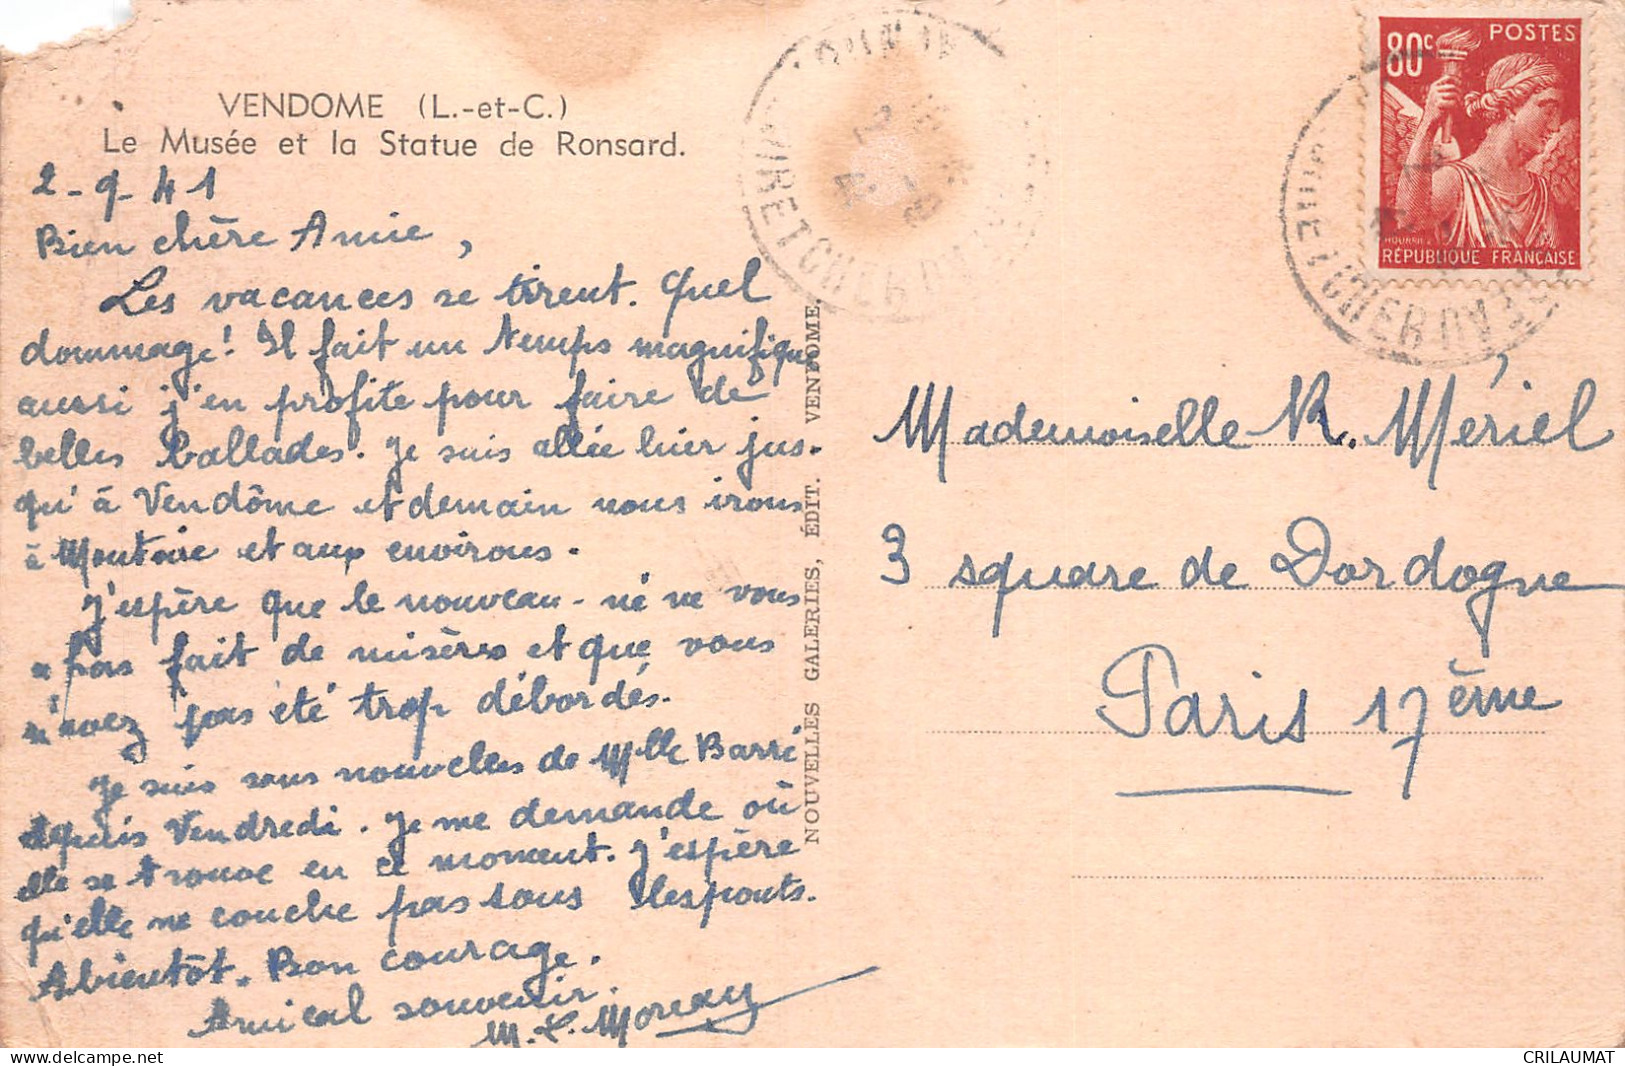 VENDOME (L.-et-C.)
Le Musée et la Statue de Ronsard.
2-9-41
Bien chère Amie,
Les vacances se tirent. Quel
dommage! Il fait un temps magnifique
aussi j'en profite pour faire de
belles ballades. Je suis allée hier jus-
qu'à Vendôme et demain nous irons
à Montoire et aux environs.
J'espère que le nouveau-né ne vous
a pas fait de misères et que vous
n'avez pas été trop débordés.
Je suis sans nouvelles de Mlle Barré
depuis Vendredi. Je me demande où
elle se trouve en ce moment. J'espère
qu'elle ne couche pas sous les ponts.
A bientôt. Bon courage.
Amical souvenir.
M. L. Moreau
NOUVELLES GALERIES, ÉDIT. VENDOME.
80c POSTES
RÉPUBLIQUE FRANÇAISE
Mademoiselle R. Mériel
3 square de Dordogne
Paris 17ème
CRILAUMAT